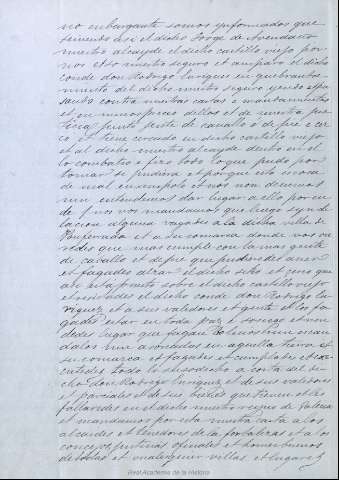 no embargante somos ynformados que
teniendo asi el dicho Jorge de Avendaño
nuestro alcayde el dicho castillo viejo por
nos et so nuestro seguro et amparo el dicho
conde don Rodrigo Enriques en quebranta-
miento del dicho nuestro seguro yendo e pa-
sando contra nuestras cartas e mandamientos
et en menosprecio dellos et de nuestra jus-
ticia junto gente de cavallo e de pie e cer-
có et tiene cercado en dicho castillo viejo
et al dicho nuestro alcayde dentro en el
lo combatio e fizo todo lo que pudo por
tomar se pudiera et porque esto es cosa
de mal enxemplo et nos non devemos
nin entendemos dar lugar a ello por en-
de nos vos mandamos que luego syn di-
lacion alguna vayades a la dicha villa de
Ponferrada et a su comarca donde vos va-
redes que mas cumple con la mas gente
de cavallo et de pie que pudierdes aver
et fagades alzar el dicho sitio et cerco que
an está puesto sobre el dicho castillo viejo
et resistades el dicho conde don Rodrigo En-
riquez et a sus valedores et gente et los fa-
gades estar en toda paz e sosiego et non
dedes lugar que fagan bolicios nin escan-
dalos nin asonadas en aquella tierra et
su comarca et fagades et cumplades et exe-
cutedes todo lo susodicho a costa del di-
cho don Rodrigo Enriquez et de sus valedores
et parciales et de sus bienes que tienen et les
fallaredes en el dicho nuestro reyno de Galicia
et mandamos por esta nuestra carta a los
alcaides et tenedores de las fortalezas et a los
concejos justicias oficiales et homes buenos
de todas et qualesquier villas et lugares
Real Academia de la Historia